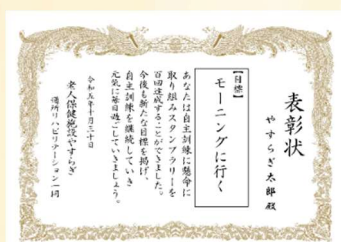 表彰状
やすらぎ太郎 殿
【目標】
モーニングに行く
あなたは自主訓練に懸命に
取り組みスタンプラリーを
百回達成することができました。
今後も新たな目標を掲げ、
自主訓練を継続していき
元気に毎日過ごしていきましょう。
令和五年十月三十日
老人保健施設やすらぎ
通所リハビリテーション一同